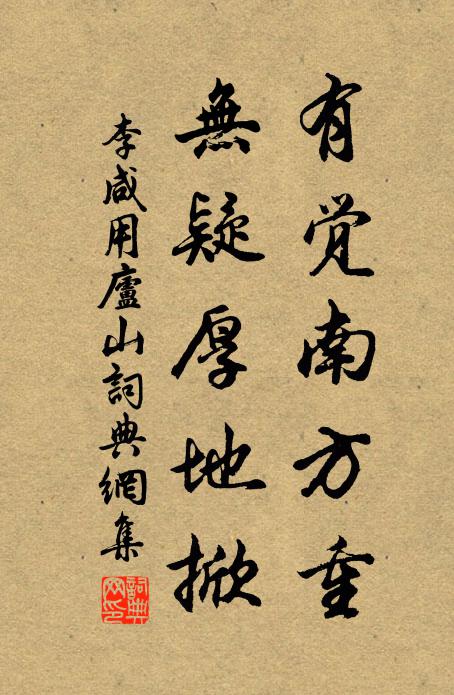 有觉南方重
無疑厚地掀
李咸用廬山詞典網集
詞典網印